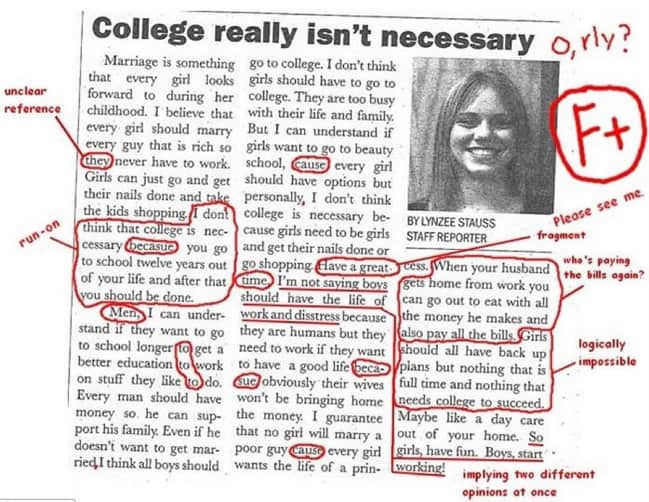 College really isn't necessary
o, rly?
F+
Marriage is something
that every girl looks
forward to during her
childhood. I believe that
every girl should marry
every guy that is rich so
they never have to work.
Girls can just go and get
their nails done and take
the kids shopping. I dont
think that college is nec-
cessary becasue you go
to school twelve years out
of your life and after that
you should be done.
Men, I can under-
stand if they want to go
to school longer to get a
better education to work
on stuff they like to do.
Every man should have
money so he can sup-
port his family. Even if he
doesn't want to get mar-
ried, I think all boys should
go to college. I don't think
girls should have to go to
college. They are too busy
with their life and family.
But I can understand if
girls want to go to beauty
school, cause every girl
should have options but
personally, I don't think
college is necessary be-
cause girls need to be girls
and get their nails done or
go shopping. Have a great
time. I'm not saying boys
should have the life of
work and disstress because
they are humans but they
need to work if they want
to have a good life beca-
sue obviously their wives
won't be bringing home
the money. I guarantee
that no girl will marry a
poor guy cause every girl
wants the life of a prin-
BY LYNZEE STAUSS
STAFF REPORTER
cess. When your husband
gets home from work you
can go out to eat with all
the money he makes and
also pay all the bills. Girls
should all have back up
plans but nothing that is
full time and nothing that
needs college to succeed.
Maybe like a day care
out of your home. So
girls, have fun. Boys, start
working!
unclear
reference
run-on
Please see me.
fragment
who's paying
the bills again?
logically
impossible
implying two different
opinions at once